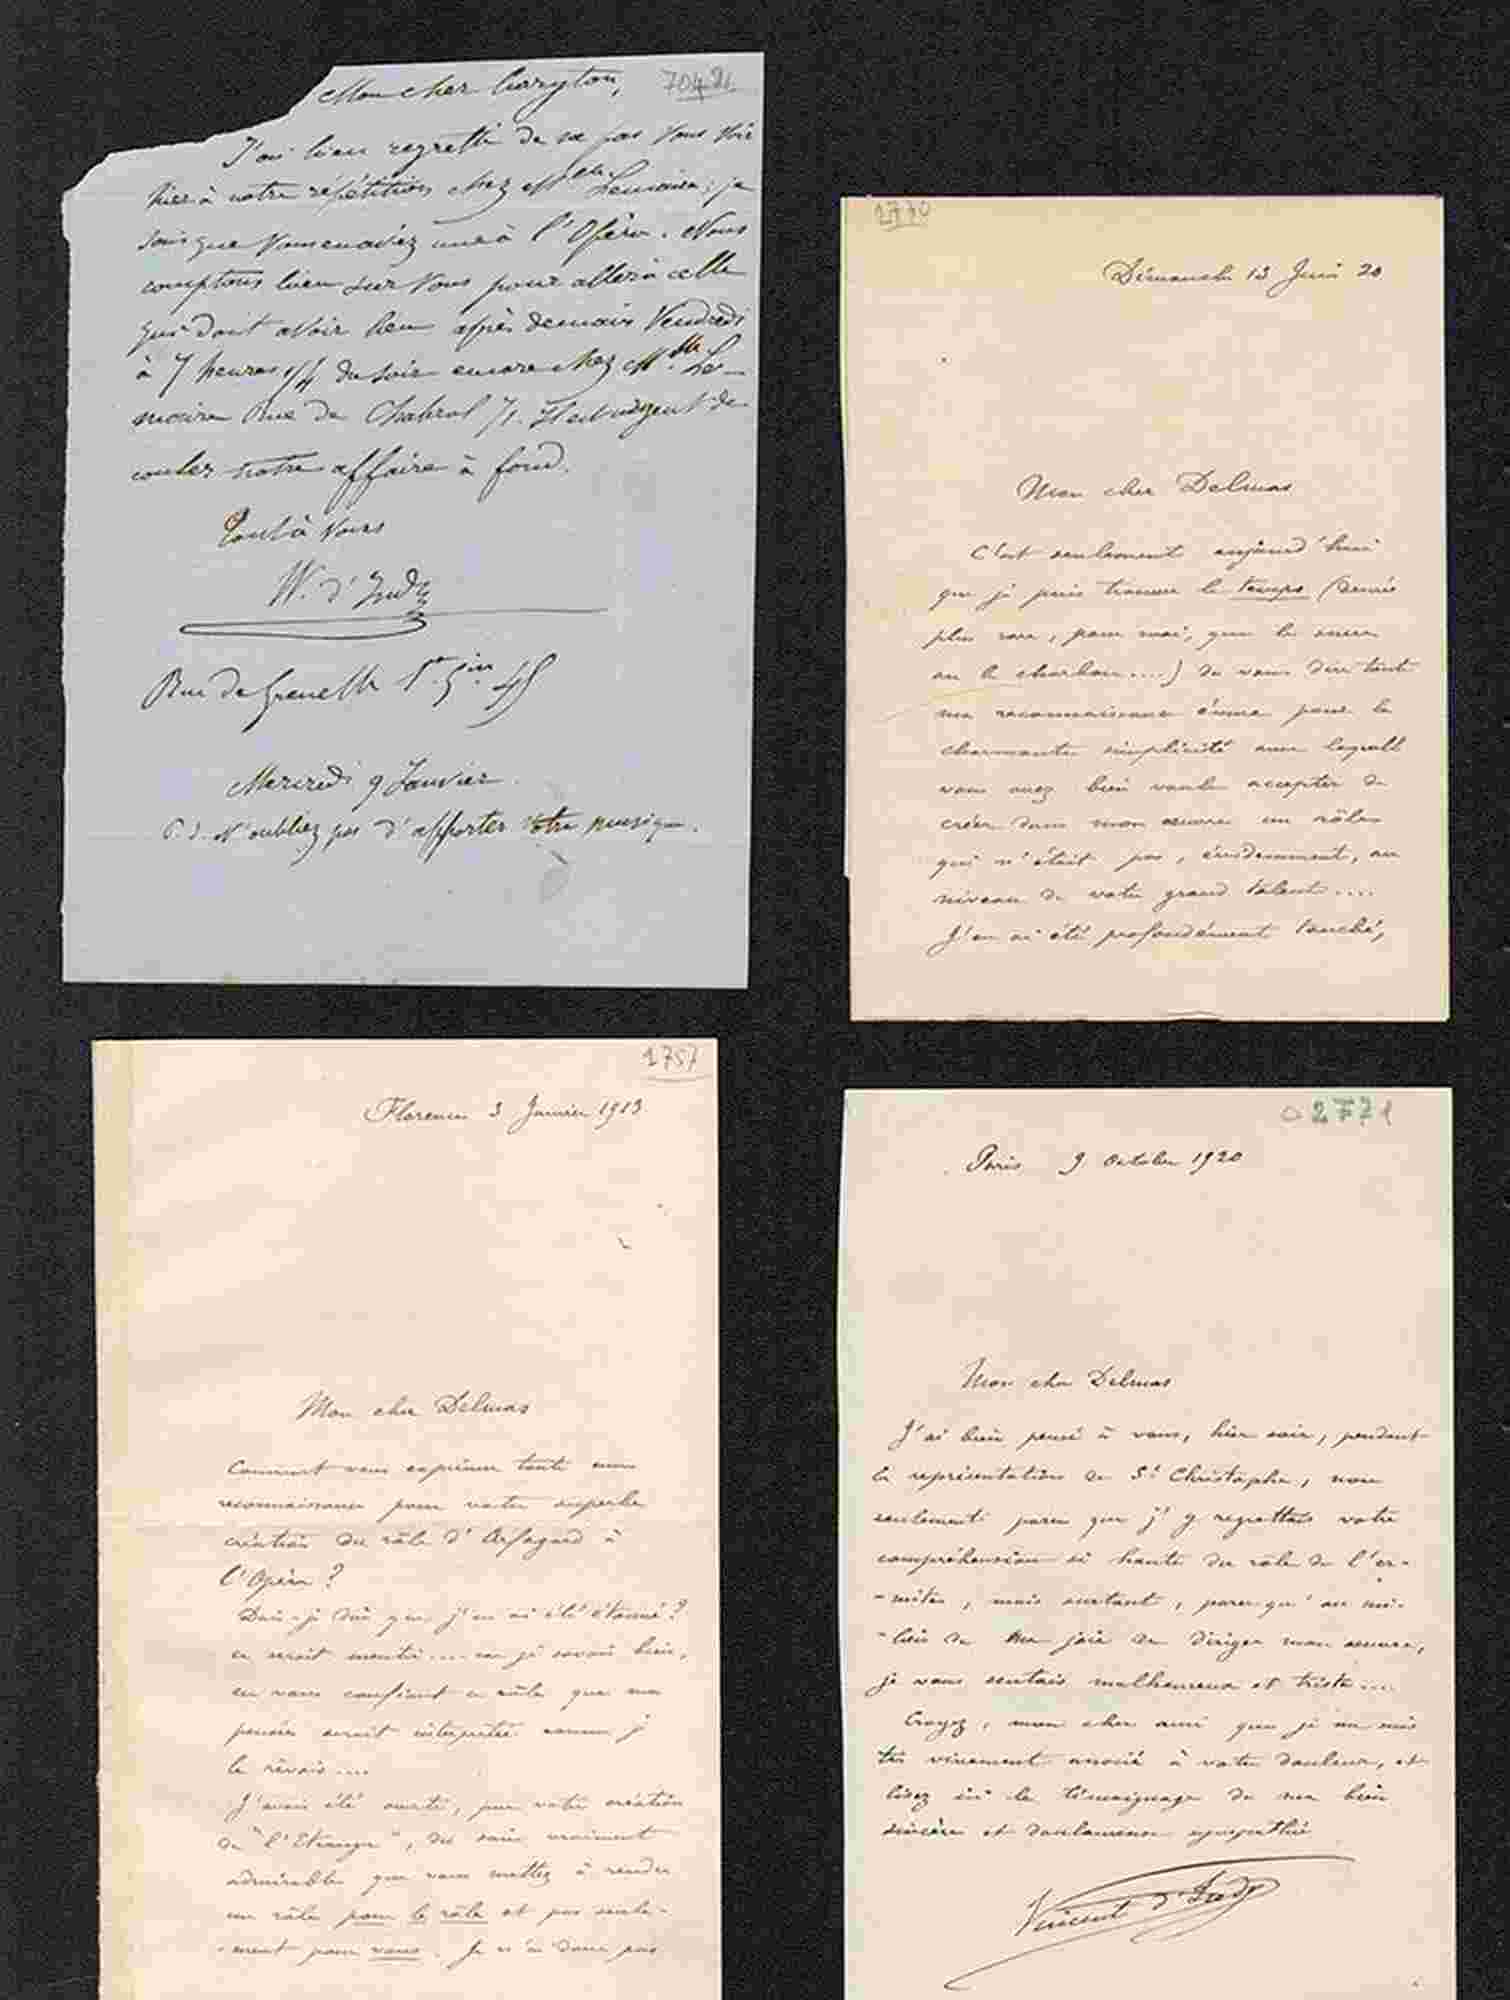 Mon cher Caryton,
70481
J'ai bien regretté de ne pas vous voir
hier à notre répétition chez Mlle Lemoine ; je
sais que vous en aviez une à l'Opéra. Nous
comptons bien sur vous pour aller à celle
qui doit avoir lieu après demain Vendredi
à 7 heures 1/4 du soir encore chez Mlle Le-
moine Rue de Chabrol 71. Il est urgent de
couler notre affaire à fond.
Tout à vous
W. d'Indy
Rue de Grenelle St Gin 45
Mercredi 9 Janvier
P.S. N'oubliez pas d'apporter votre musique.
2770
Dimanche 13 Juin 20
Mon cher Delmas
C'est seulement aujourd'hui
que je puis trouver le temps (denrée
plus rare, pour moi, que le sucre
ou le charbon....) de vous dire toute
ma reconnaissance émue pour la
charmante simplicité avec laquelle
vous avez bien voulu accepter de
créer dans mon œuvre un rôle
qui n'était pas, évidemment, au
niveau de votre grand talent....
J'en ai été profondément touché,
2757
Florence 3 Janvier 1913
Mon cher Delmas
Comment vous exprimer toute ma
reconnaissance pour votre superbe
création du rôle d'Arfagard à
l'Opéra ?
Dois-je dire que j'en ai été étonné ?
ce serait mentir.... car je savais bien,
en vous confiant ce rôle que ma
pensée serait interprétée comme je
le rêvais....
J'avais été averti, par votre création
de "l'Etranger", du soin vraiment
admirable que vous mettez à rendre
un rôle pour le rôle et pas seule-
-ment pour vous. Je n'ai donc pas
2771
Paris 9 Octobre 1920
Mon cher Delmas
J'ai bien pensé à vous, hier soir, pendant
la représentation de St Christophe, non
seulement parce que j'y regrettais votre
compréhension si haute du rôle de l'er-
-mite, mais surtout, parce qu'au mi-
-lieu de ma joie de diriger mon œuvre,
je vous sentais malheureux et triste...
Croyez, mon cher ami que je me suis
très vivement associé à votre douleur, et
lisez ici le témoignage de ma bien
sincère et douloureuse sympathie
Vincent d'Indy